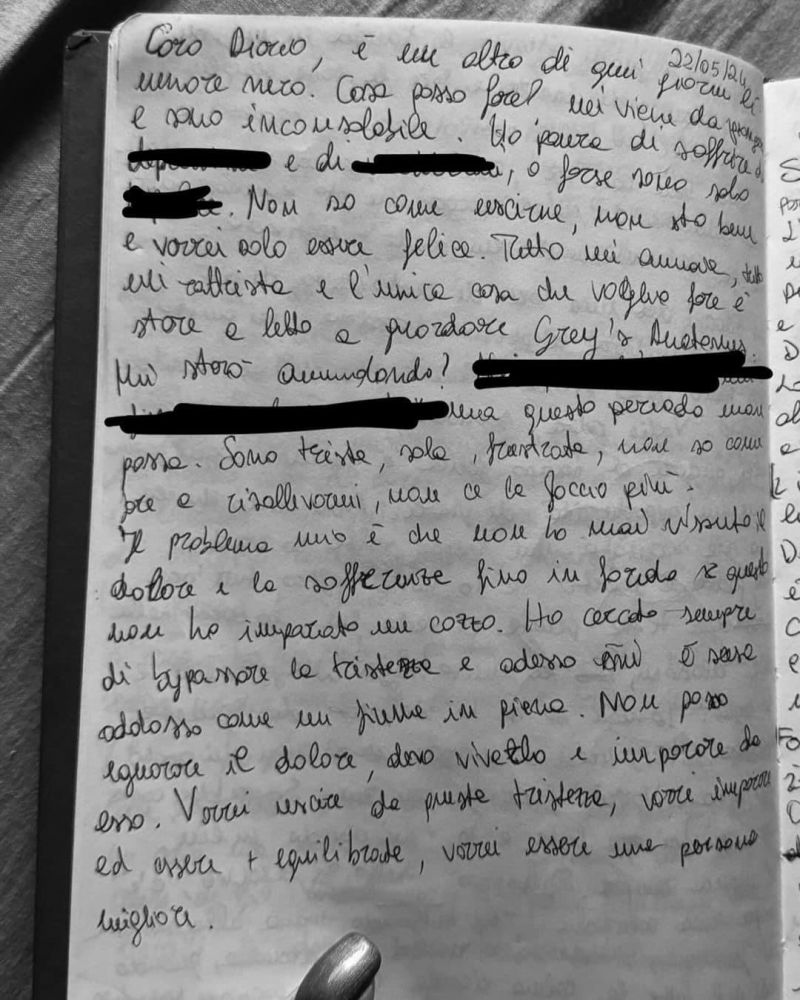 22/05/24
Caro Diario, è un altro di quei giorni di
umore nero. Cosa posso fare? mi viene da piangere
e sono inconsolabile. Ho paura di soffrire di
e di , o forse sono solo
. Non so come uscirne, non sto bene
e vorrei solo essere felice. Tutto mi annoia, tutto
mi rattrista e l'unica cosa che voglio fare è
stare a letto a guardare Grey's Anatomy.
Mi starò ammalando?
ma questo periodo non
passa. Sono triste, sola, frustrata, non so come
fare a risollevarmi, non ce la faccio più.
Il problema mio è che non ho mai vissuto il
dolore e la sofferenza fino in fondo x questo
non ho imparato un cazzo. Ho cercato sempre
di bypassare la tristezza e adesso mi è scesa
addosso come un fiume in piena. Non posso
ignorare il dolore, devo viverlo e imparare da
esso. Vorrei uscire da questa tristezza, vorrei imparare
ed essere + equilibrata, vorrei essere una persona
migliore.